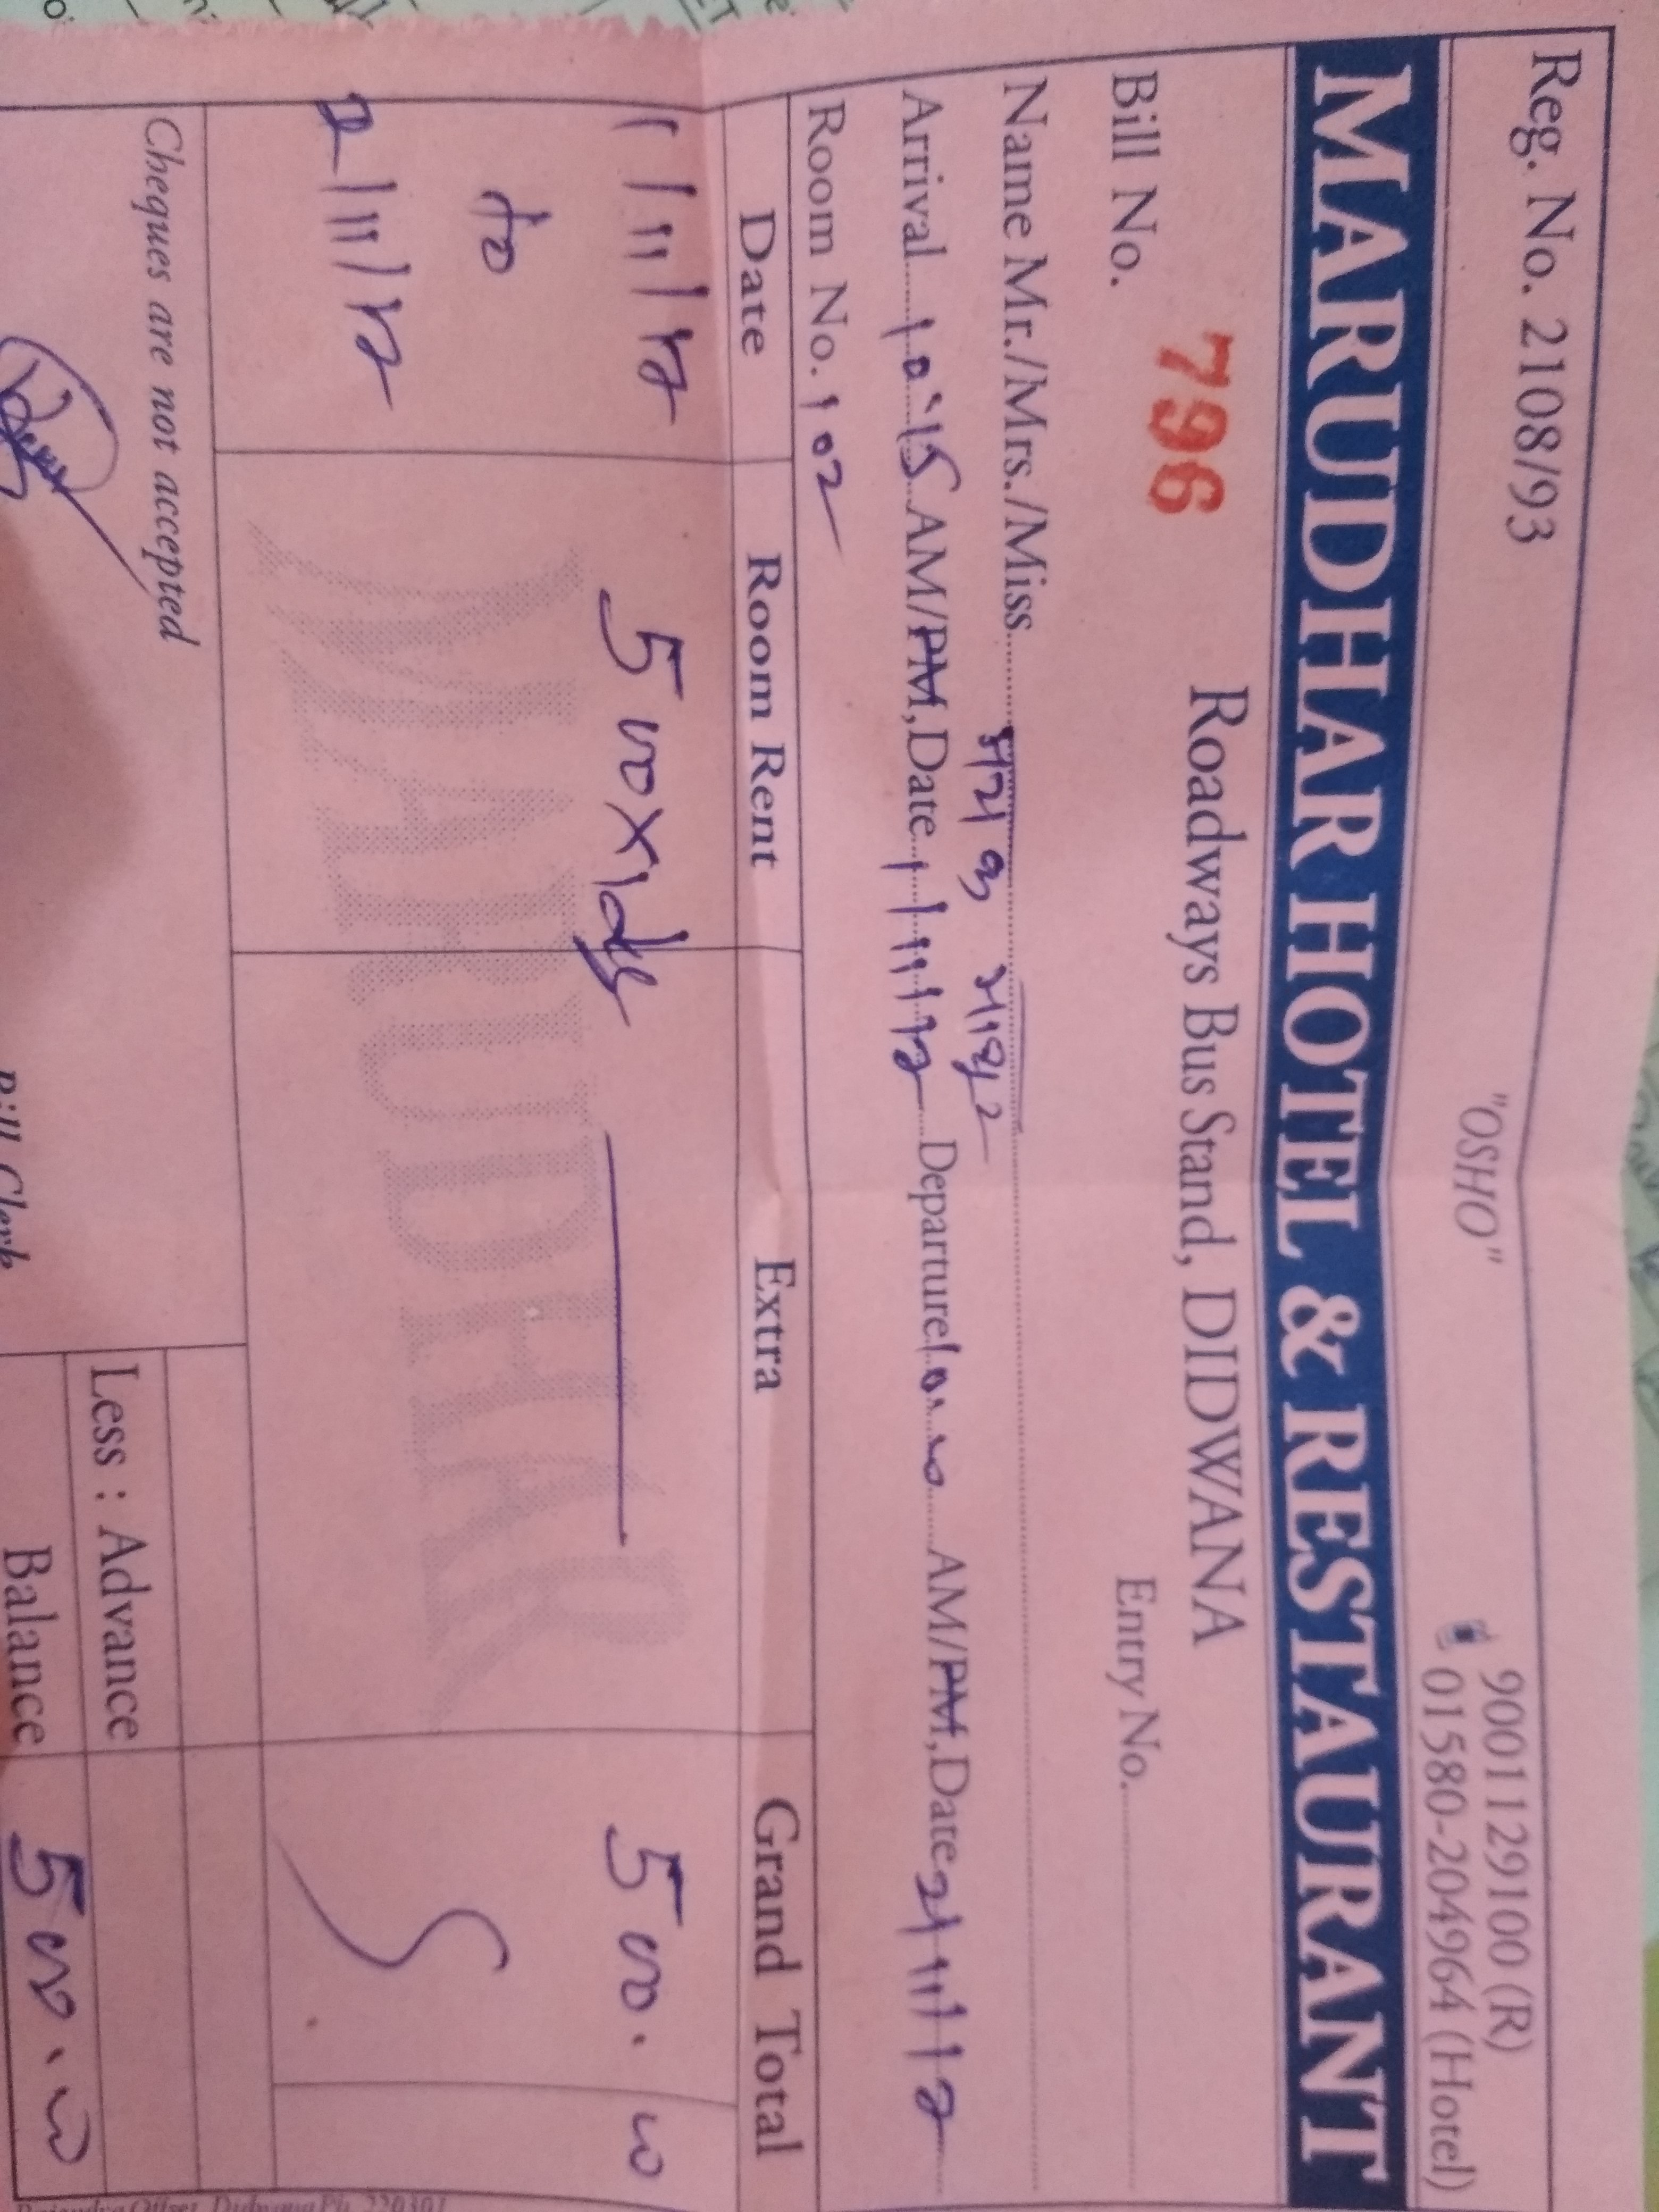 Reg. No. 2108/93
"OSHO"
9001129100 (R)
01580-204964 (Hotel)
MARUDHAR HOTEL & RESTAURANT
Roadways Bus Stand, DIDWANA
Bill No. 796 Entry No.
Name Mr./Mrs./Miss मयंक माथुर
Arrival 10.15 AM/PM, Date 1/11/12 Departure 10.00 AM/PM, Date 2/11/12
Room No. 102
Date Room Rent Extra Grand Total
1/11/12 500X1day 500.00
to
2/11/12
MARUDHAR
Cheques are not accepted
Less : Advance
Balance 500.00
Bill Clerk